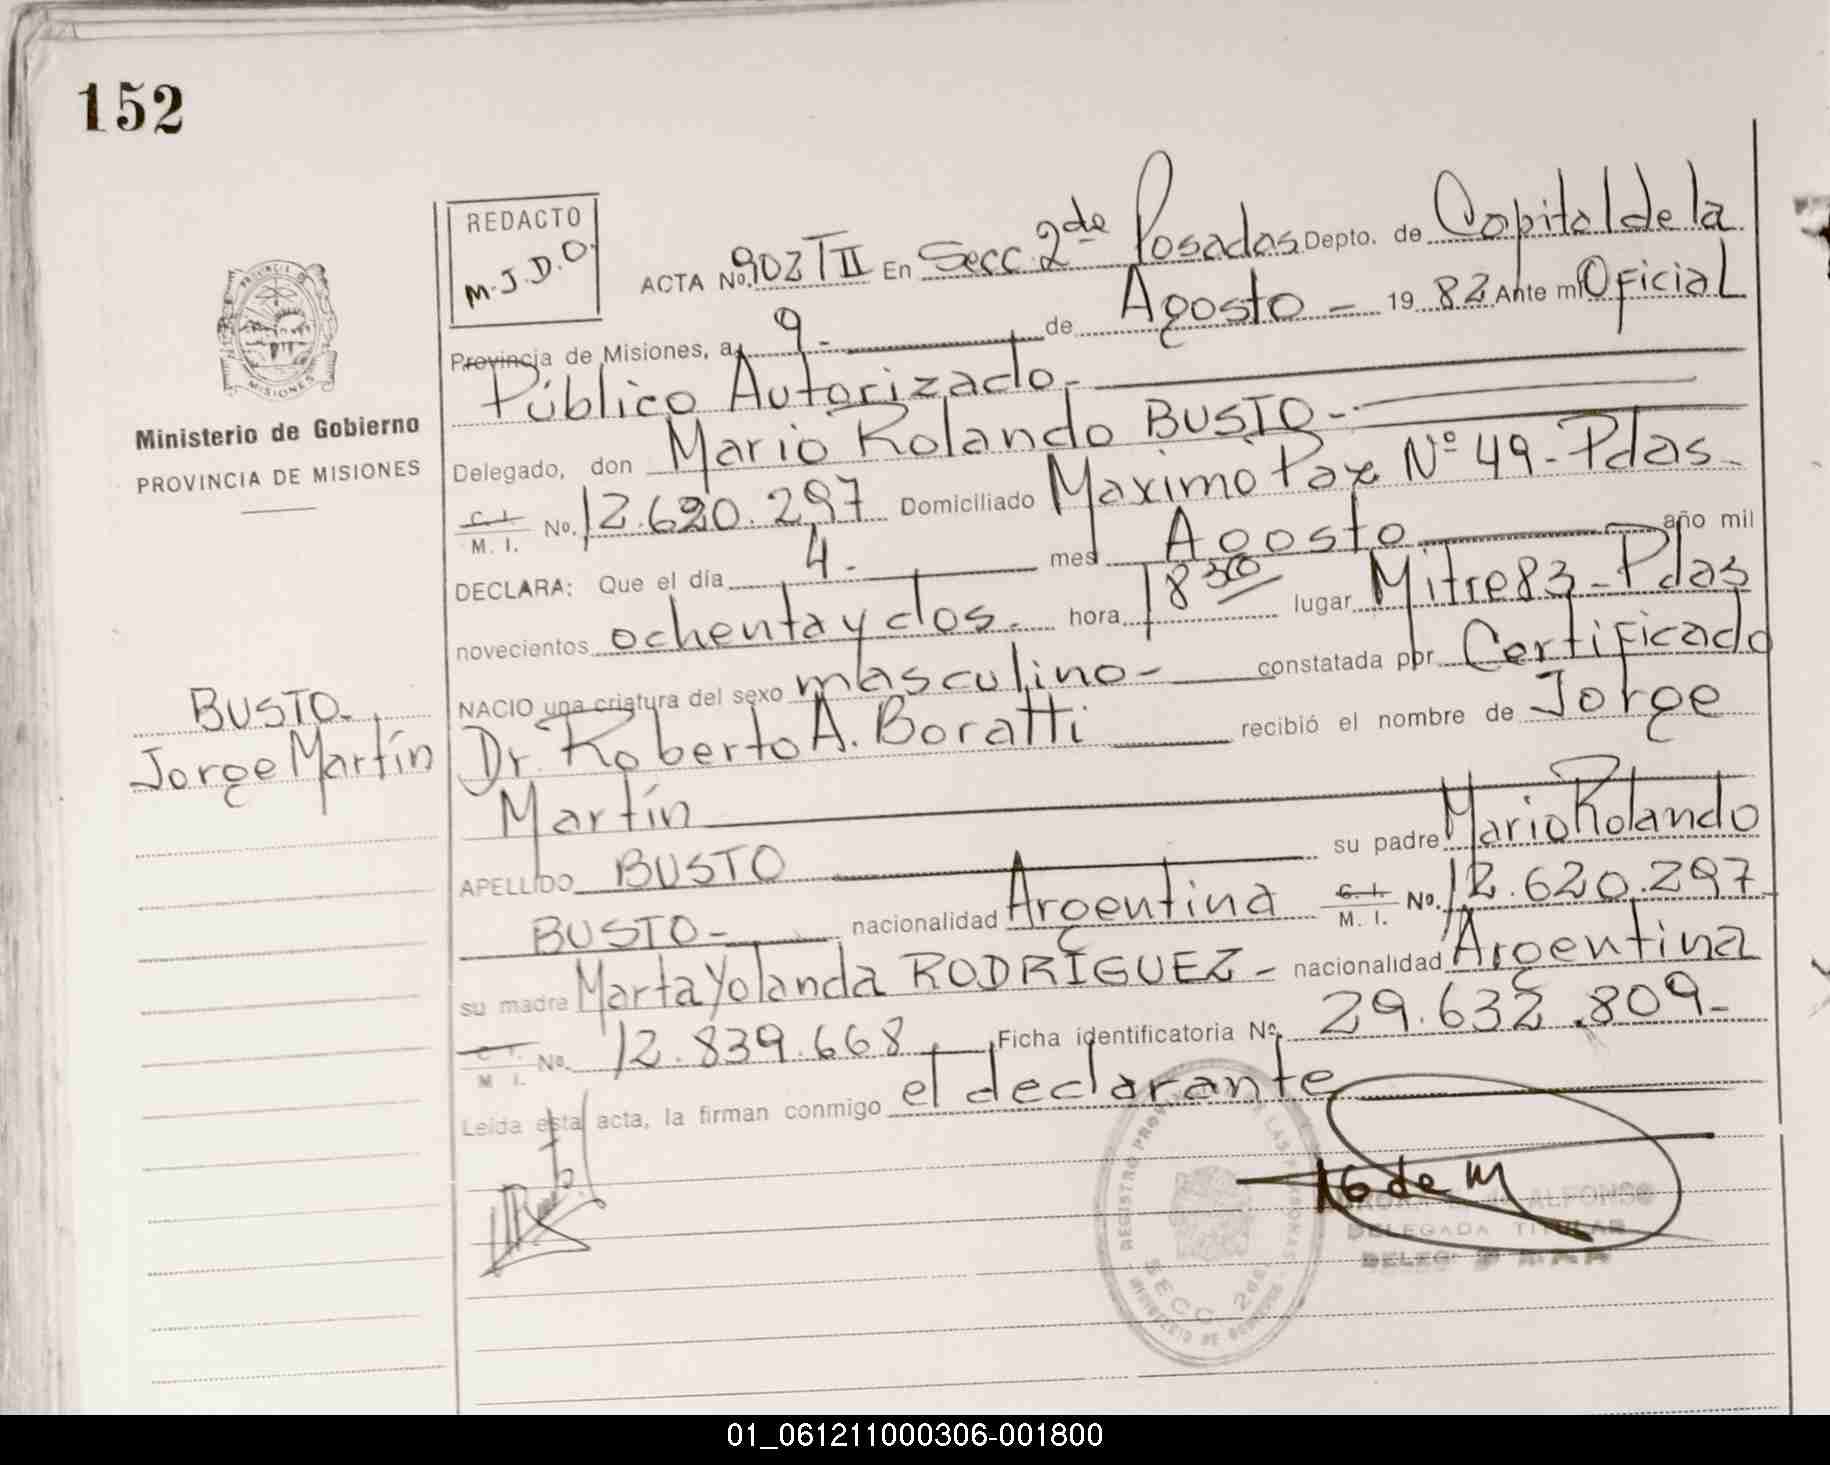 152
REDACTO
M.J.D.O.
ACTA No. 902 T II En Secc. 2da Posadas Depto. de Capital de la
Provincia de Misiones, a 9.- de Agosto - 1982 Ante mi Oficial
Público Autorizado.-
Ministerio de Gobierno
PROVINCIA DE MISIONES
Delegado, don Mario Rolando BUSTO-.
C. I. M. I. No. 12.620.297 Domiciliado Maximo Paz Nº 49 - Pdas.-
DECLARA: Que el día 4.- mes Agosto año mil
novecientos ochenta y dos.- hora 18 30 lugar Mitre 83 - Pdas
NACIO una criatura del sexo masculino - constatada por Certificado
BUSTO-.
Jorge Martín
Dr. Roberto A. Boratti recibió el nombre de Jorge
Martín
APELLIDO BUSTO su padre Mario Rolando
BUSTO- nacionalidad Argentina C. I. M. I. No. 12.620.297
su madre Marta Yolanda RODRÍGUEZ - nacionalidad Argentina
C. I. M. I. No. 12.839.668 Ficha identificatoria No. 29.632.809-
Leída esta acta, la firman conmigo el declarante
REGISTRO LAS PERSONAS
SECC 2da
MINISTERIO DE GOBIERNO
ALFONSO
DELEGADA TITULAR
DELEG.
01_061211000306-001800